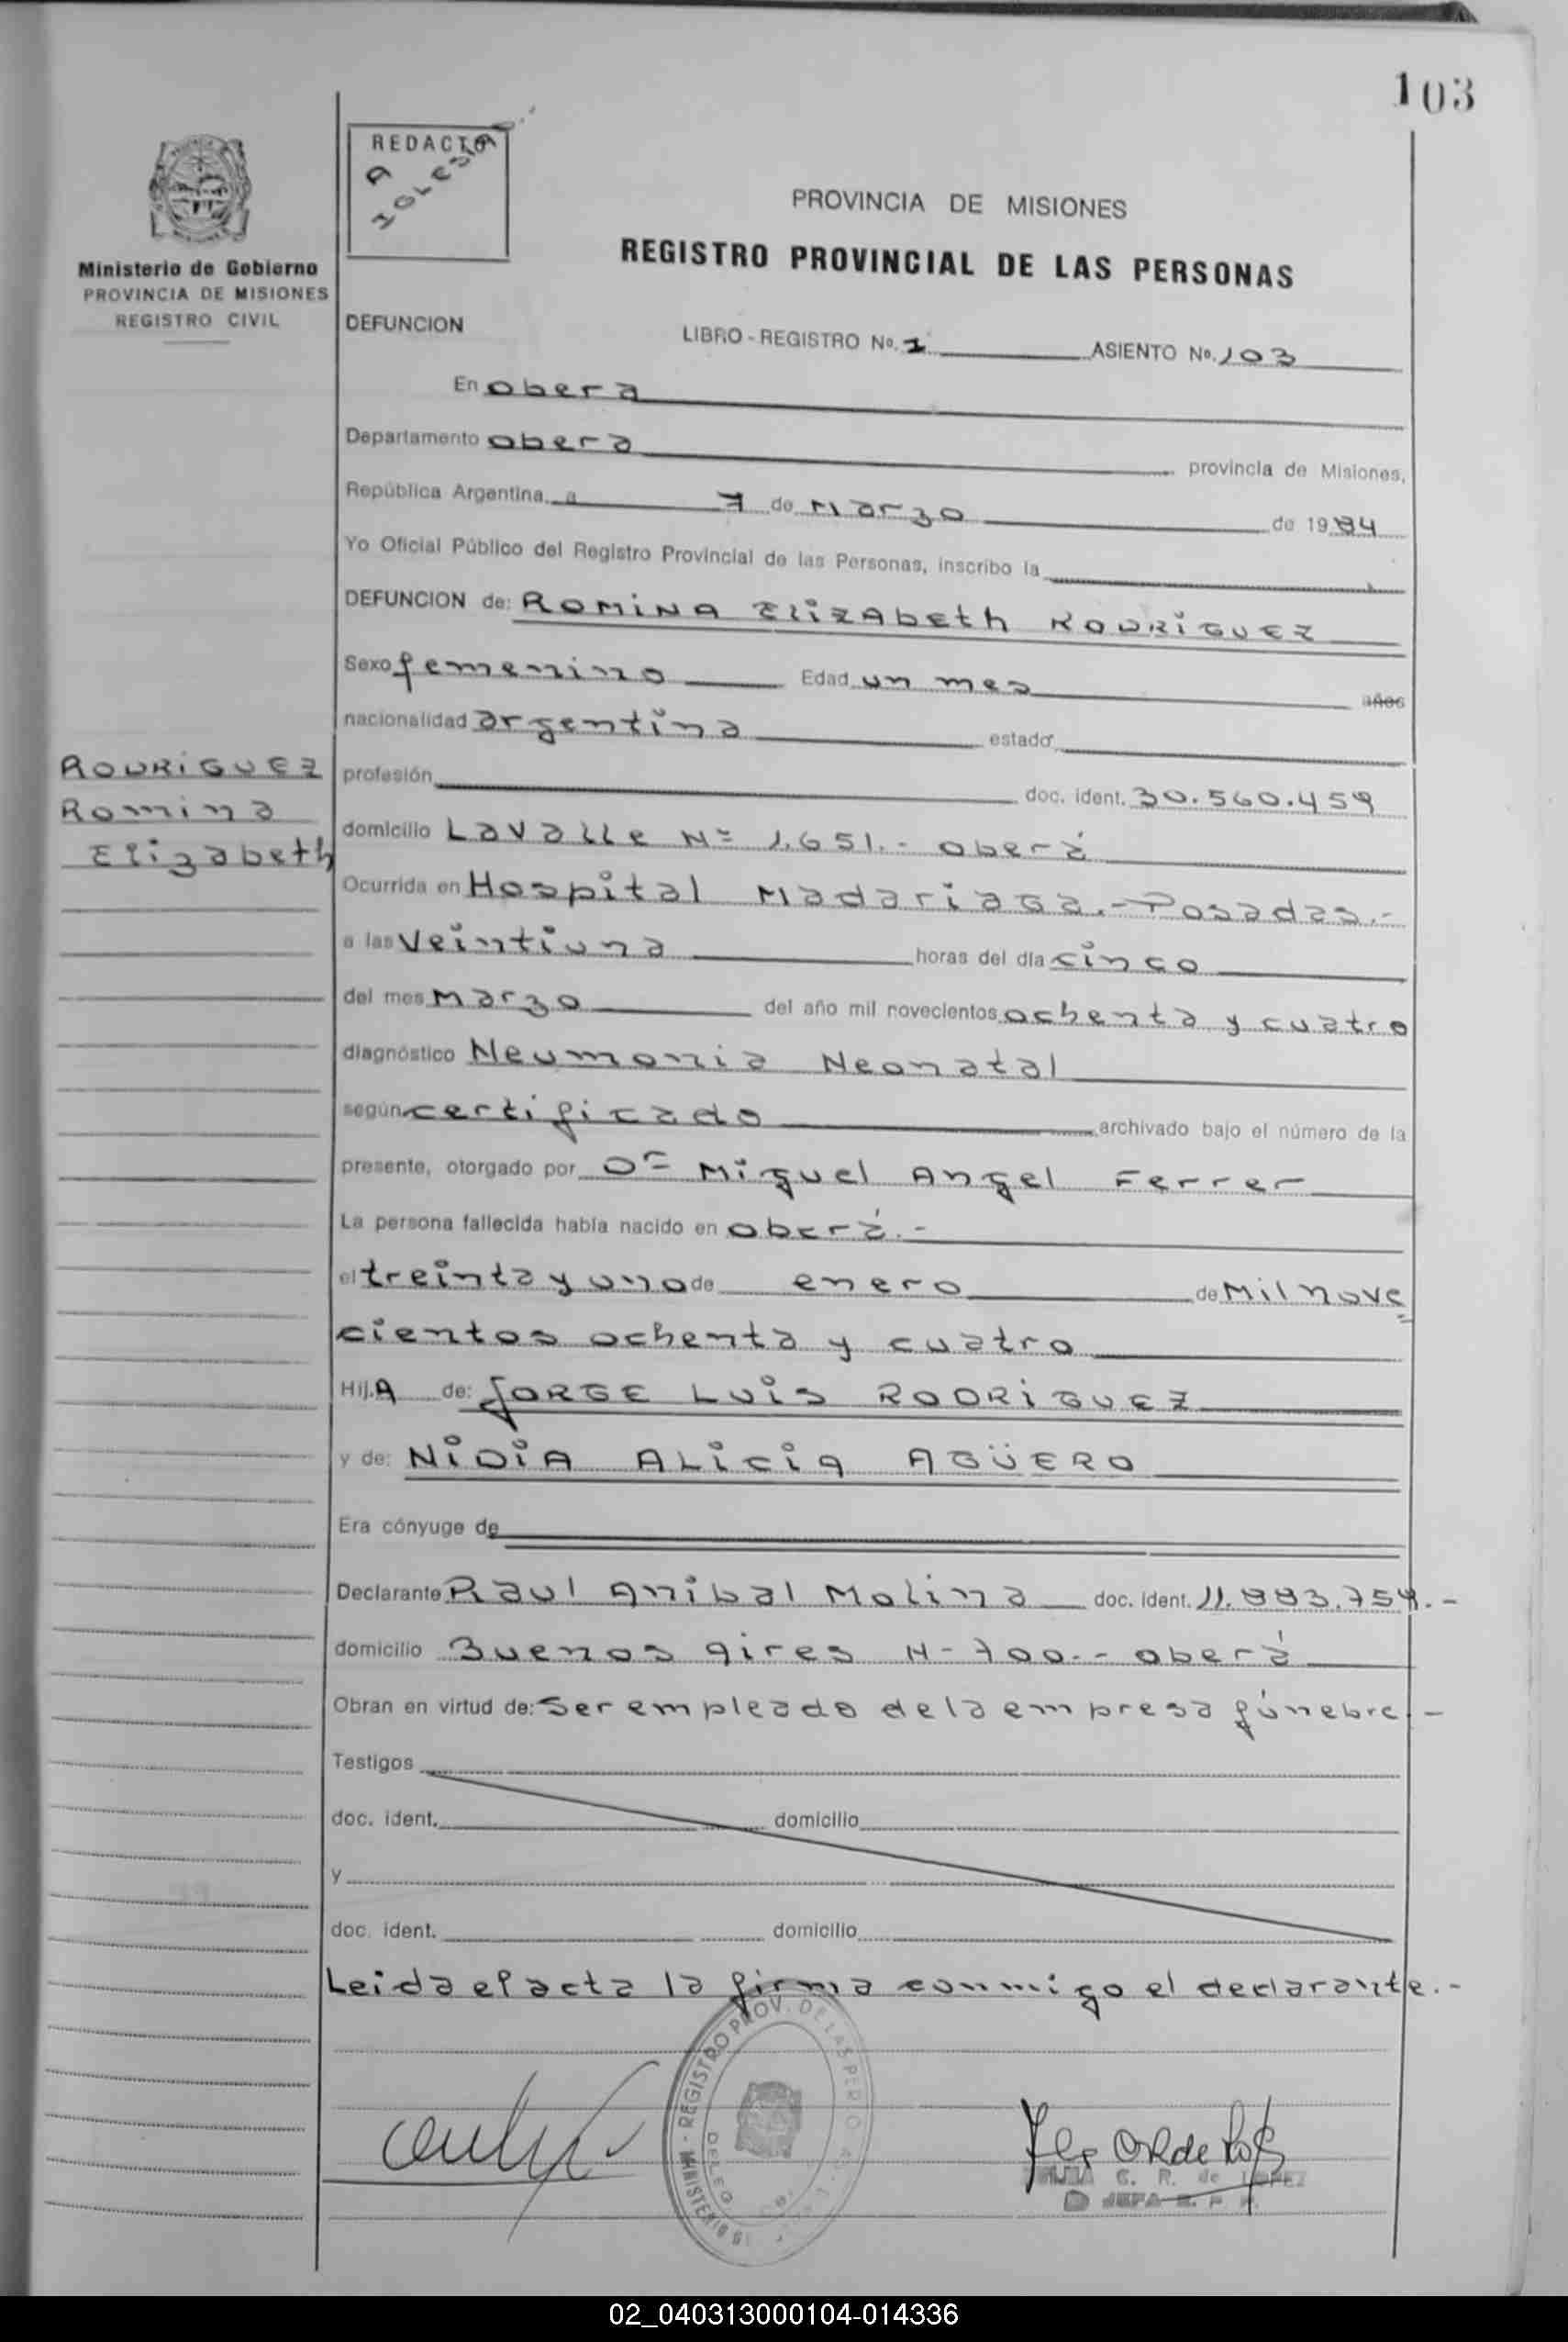 103
REDACTO
A IGLESIAS
PROVINCIA DE MISIONES
REGISTRO PROVINCIAL DE LAS PERSONAS
Ministerio de Gobierno
PROVINCIA DE MISIONES
REGISTRO CIVIL
DEFUNCION
LIBRO - REGISTRO Nº. 1 ASIENTO Nº. 103
En obera
Departamento obera provincia de Misiones,
República Argentina, a 7 de Marzo de 1984
Yo Oficial Público del Registro Provincial de las Personas, inscribo la
DEFUNCION de: ROMINA ELIZABETH RODRIGUEZ
Sexo femenino Edad un mes años
nacionalidad argentina estado
RODRIGUEZ
Romina
Elizabeth
profesión doc. ident. 30.560.459
domicilio Lavalle Nº 1.651.- oberá
Ocurrida en Hospital Madariaga.- Posadas.-
a las veintiuna horas del día cinco
del mes Marzo del año mil novecientos ochenta y cuatro
diagnóstico Neumonia Neonatal
según certificado archivado bajo el número de la
presente, otorgado por Dr Miguel Angel Ferrer
La persona fallecida había nacido en oberá.-
el treinta y uno de enero de Mil nove
cientos ochenta y cuatro
Hij.A de: JORGE LUIS RODRIGUEZ
y de: NIDIA ALICIA AGÜERO
Era cónyuge de
Declarante Raul Anibal Molina doc. ident. 11.883.754.-
domicilio Buenos Aires N- 700.- oberá
Obran en virtud de: Ser empleado de la empresa fúnebre -
Testigos
doc. ident. domicilio
y
doc. ident. domicilio
Leida el acta la firma conmigo el declarante.-
MINISTERIO - REGISTRO PROV. DE LAS PERSO
DELEG.
G. R. de LOPEZ
JEFA
02_040313000104-014336